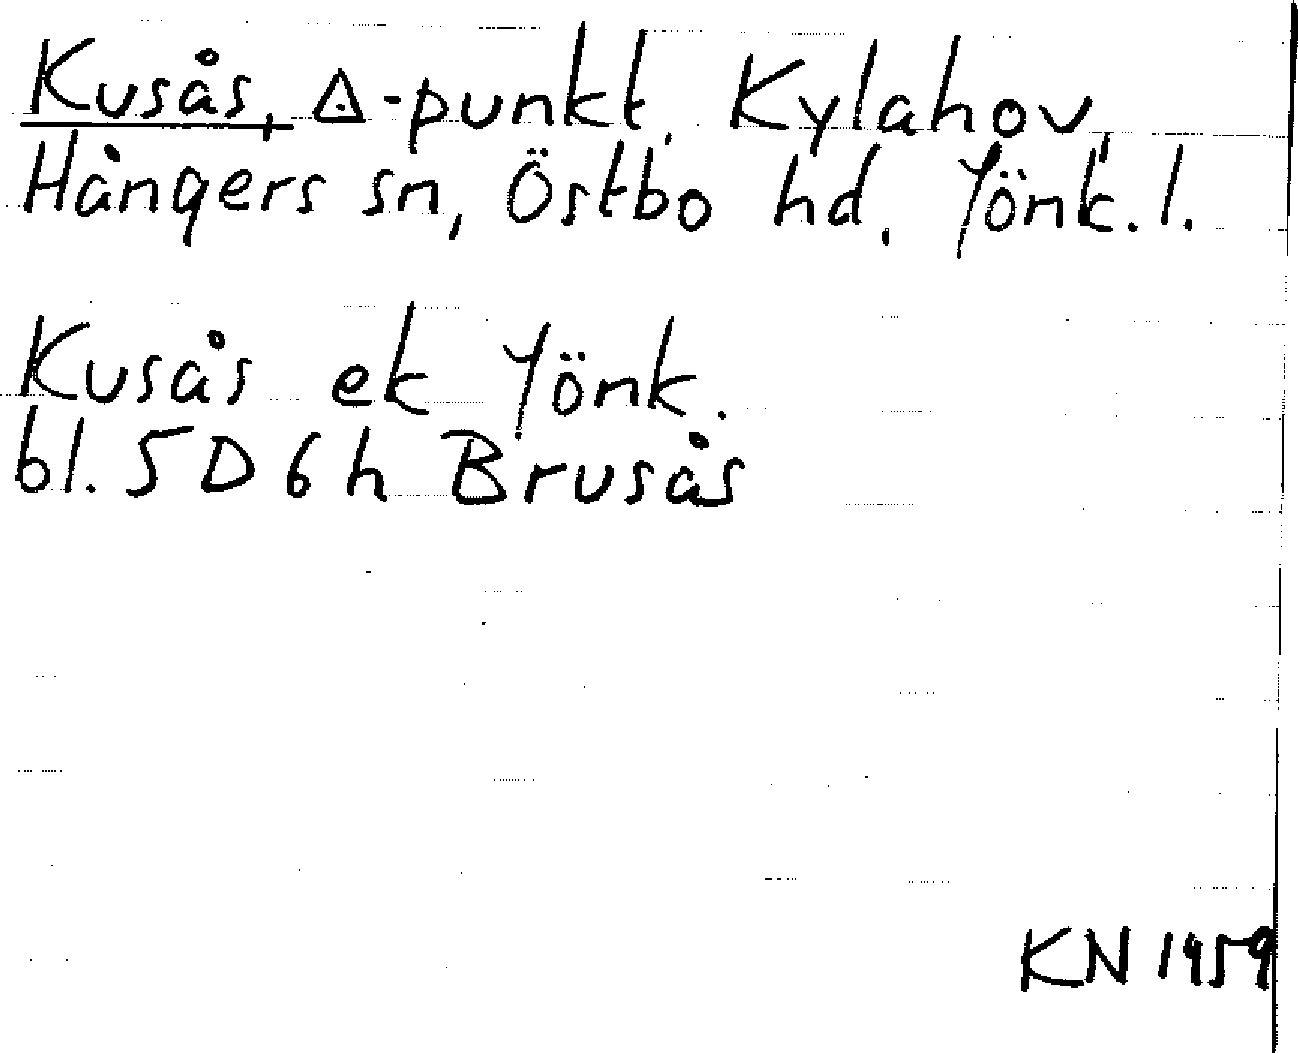 Kusås, △-punkt, Kylahov,
Hångers sn, Östbo hd, Jönk. l.
Kusås ek Jönk.
bl. 5D6h Brusås
KN 1959